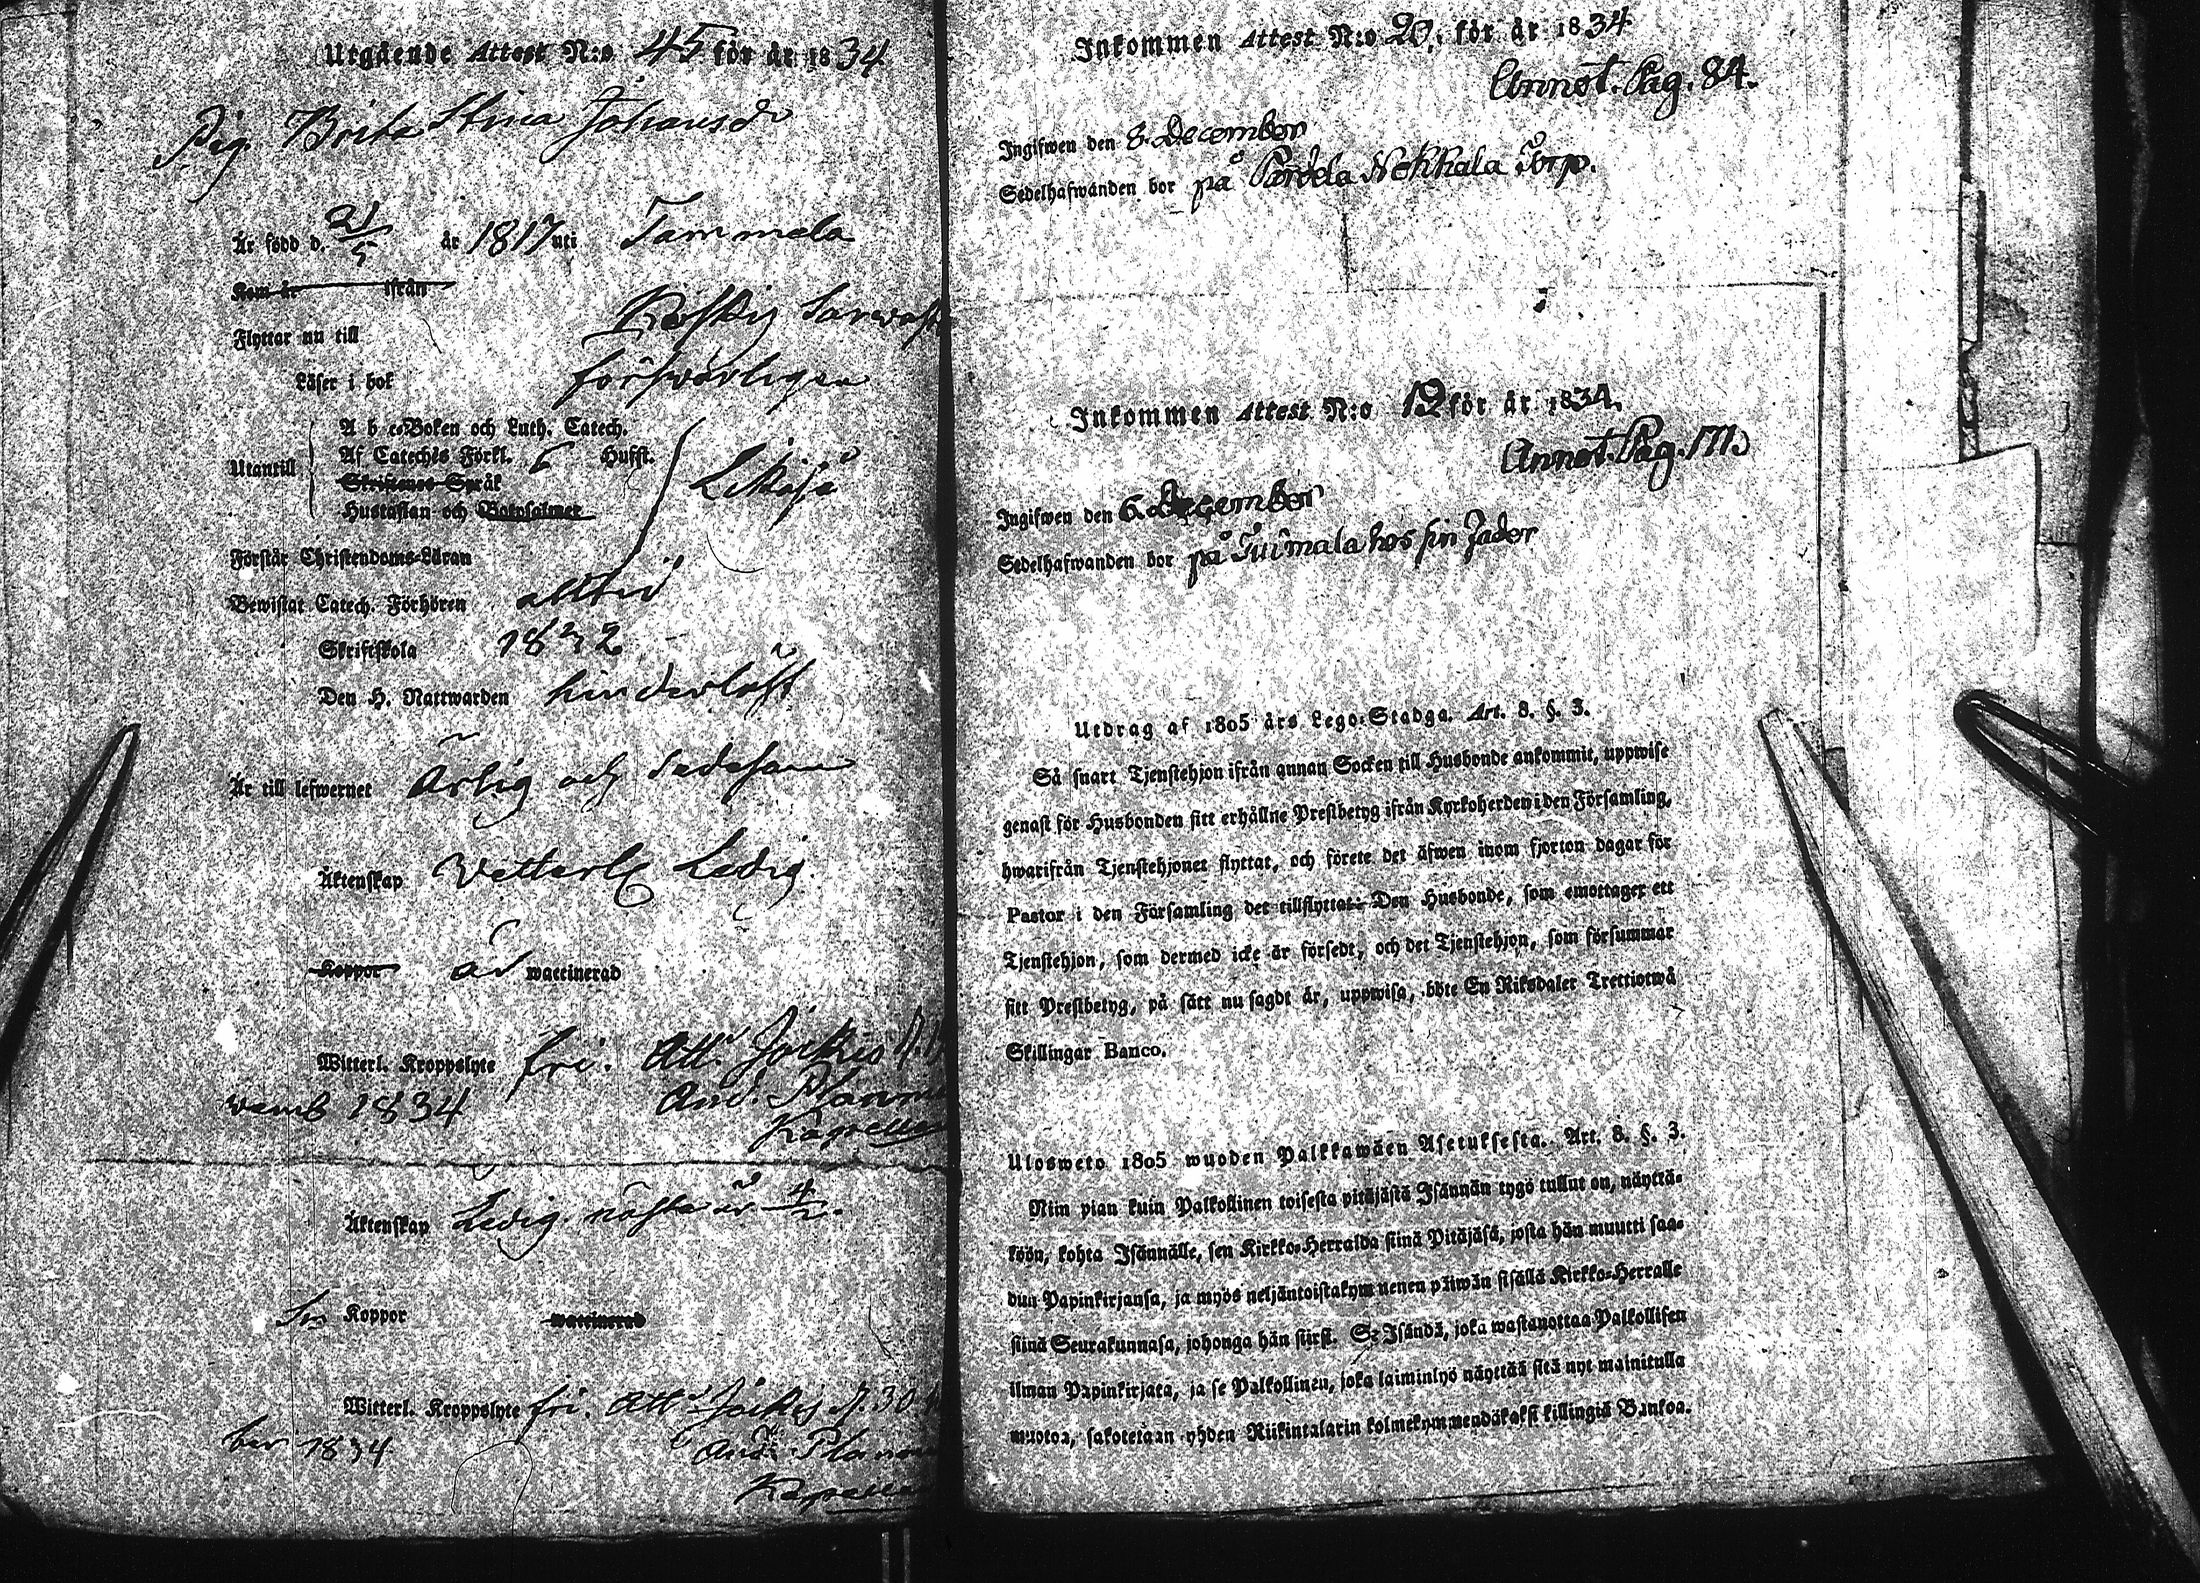 Utgående Attest N:o 45 för år 1834
Pig. Brita Stina Johansdr
Är född d. 21/5 år 1817 uti Tammela
Kom år ifrån
Flyttar nu till
Läser i bok försvarligen
Utantill
A b c-Boken och Luth. Catech.
Af Cateches Förkl. 6 Hufst.
Skriftenes Språk
Hustaflan och Botpsalmer
Likaså
Förstår Christendoms-Läran
Bewistat Catech. Förhören alltid
Skriftskola 1832
Den H. Nattwarden hinderlöst
Är till lefwernet Ärlig och Sedesam
Äktenskap Vetterl. Ledig.
Koppor är waccinerad
Witterl. Kroppslyte fri. Att. Jockis
vemb 1834 And. Planm
Kapellan
Äktenskap Ledig nästa år
Koppor waccinerad
Witterl. Kroppslyte fri. Att. Jockis d. 30
ber 1834 And. Planm
Kapella
Inkommen Attest N:o 20, för år 1834
Annot. Pag. 84.
Ingifwen den 8. December
Sedelhafwanden bor på Parola Nekkala Torp.
Inkommen Attest N:o 19 för år 1834.
Annot. Pag. 177.
Ingifwen den 6. December
Sedelhafwanden bor på Tuimala hos sin fader
Utdrag af 1805 års Lego-Stadga. Art. 8. §. 3.
Så snart Tjenstehjon ifrån annan Socken till Husbonde ankommit, uppwise
genast för Husbonden sitt erhållne Prestbetyg ifrån Kyrkoherden i den Församling,
hwarifrån Tjenstehjonet flyttat, och förete det äfwen inom fjorton dagar för
Pastor i den Församling det tillflyttat. Den Husbonde, som emottager ett
Tjenstehjon, som dermed icke är försedt, och det Tjenstehjon, som försummar
sitt Prestbetyg, på sätt nu sagdt är, uppwisa, böte En Riksdaler Trettiotwå
Skillingar Banco.
Ulosweto 1805 wuoden Palkkawäen Asetuksesta. Art. 8. §. 3.
Niin pian kuin Palkollinen toisesta pitäjästä Isännän tygö tullut on, näyttä-
köön, kohta Isännälle, sen Kirkko-Herralda siinä Pitäjäsä, josta hän muutti saa-
dun Papinkirjansa, ja myös neljäntoistakymmenen päiwän sisällä Kirkko-Herralle
siinä Seurakunnasa, johonga hän siirsi. Se Isändä, joka wastanottaa Palkollisen
ilman Papinkirjata, ja se Palkollinen, joka laiminlyö näyttää sitä nyt mainitulla
muotoa, sakotetaan yhden Riikintalarin kolmekymmendäkaksi killingiä Bankoa.